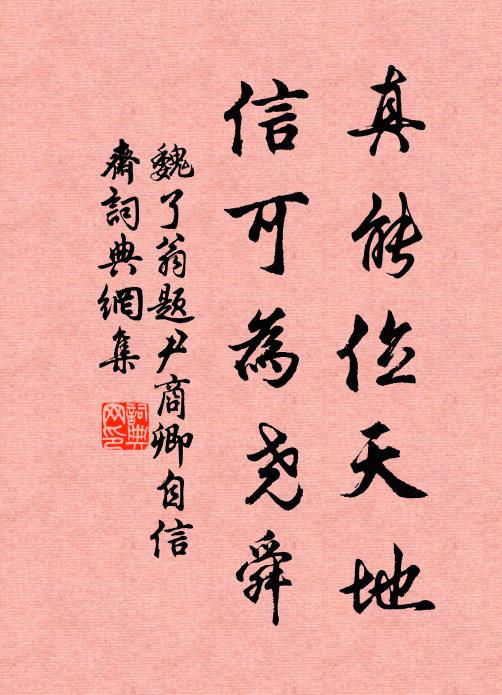 真能位天地
信可為堯舜
魏了翁題尹商卿自信
齋詞典網集
詞典網印